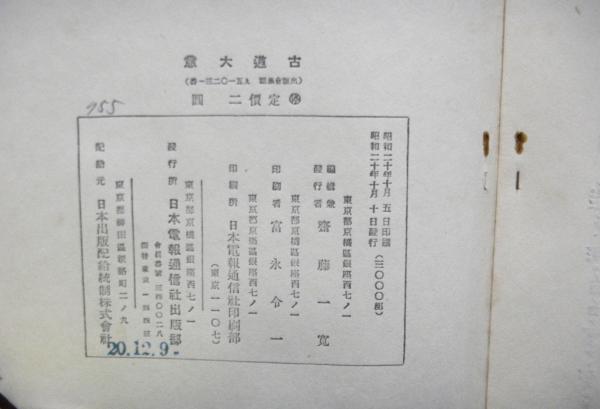 古道大意
定價二圓
955
昭和二十年十月五日印刷
昭和二十年十月十日發行(三〇〇〇部)
東京都京橋區銀座西七ノ一
編輯兼
發行者 齋藤一寬
東京都京橋區銀座西七ノ一
印刷者 富永令一
東京都京橋區銀座西七ノ一
印刷所 日本電報通信社印刷部
(東京一一〇七)
東京都京橋區銀座西七ノ一
發行所 日本電報通信社出版部
會員番號 三四〇〇二八
東京都神田區淡路町二ノ九
配給元 日本出版配給統制株式會社
20.12.9